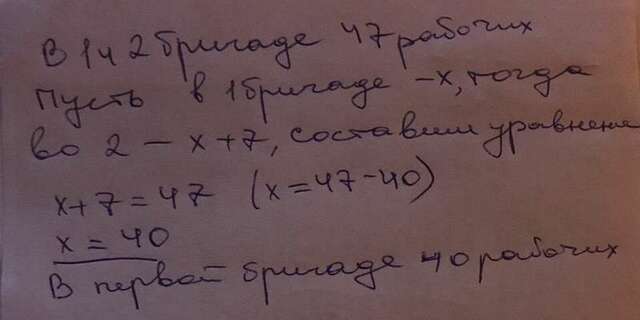 В 1 и 2 бригаде 47 рабочих
Пусть в 1 бригаде - x, тогда
во 2 - x+7, составим уравнение
x+7=47 (x=47-40)
x=40
В первой бригаде 40 рабочих